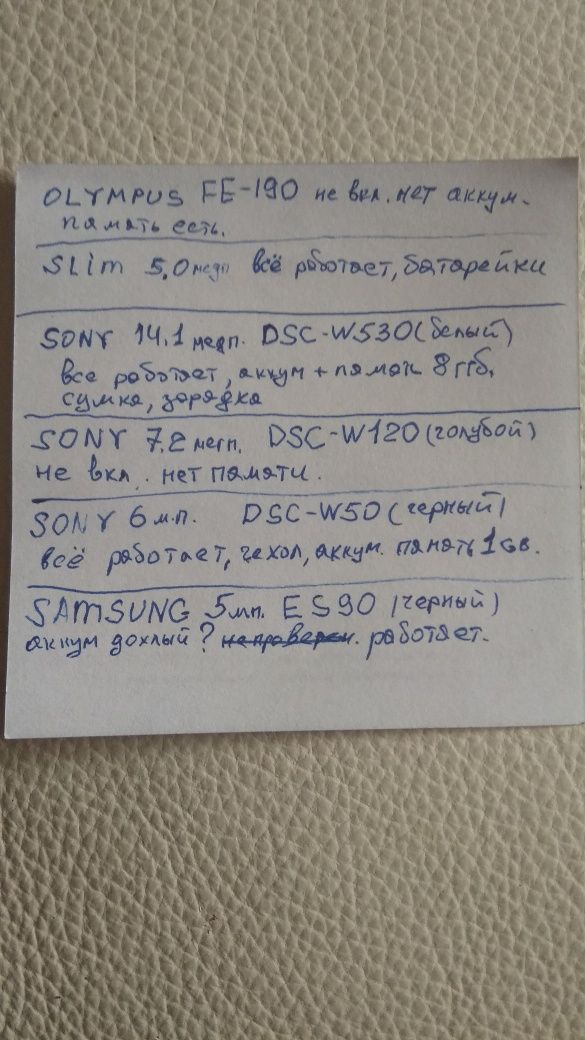 OLYMPUS FE-190 не вкл. нет аккум.
память есть.
SLim 5.0 мегп всё работает, батарейки
SONY 14.1 мегп. DSC-W530 (белый)
все работает, аккум + память 8 ггб,
сумка, зарядка
SONY 7.2 мегп. DSC-W120 (голубой)
не вкл. нет памяти.
SONY 6 м.п. DSC-W50 (черный)
всё работает, чехол, аккум. память 1GB.
SAMSUNG 5мп. ES90 (черный)
аккум дохлый? не проверен. работает.